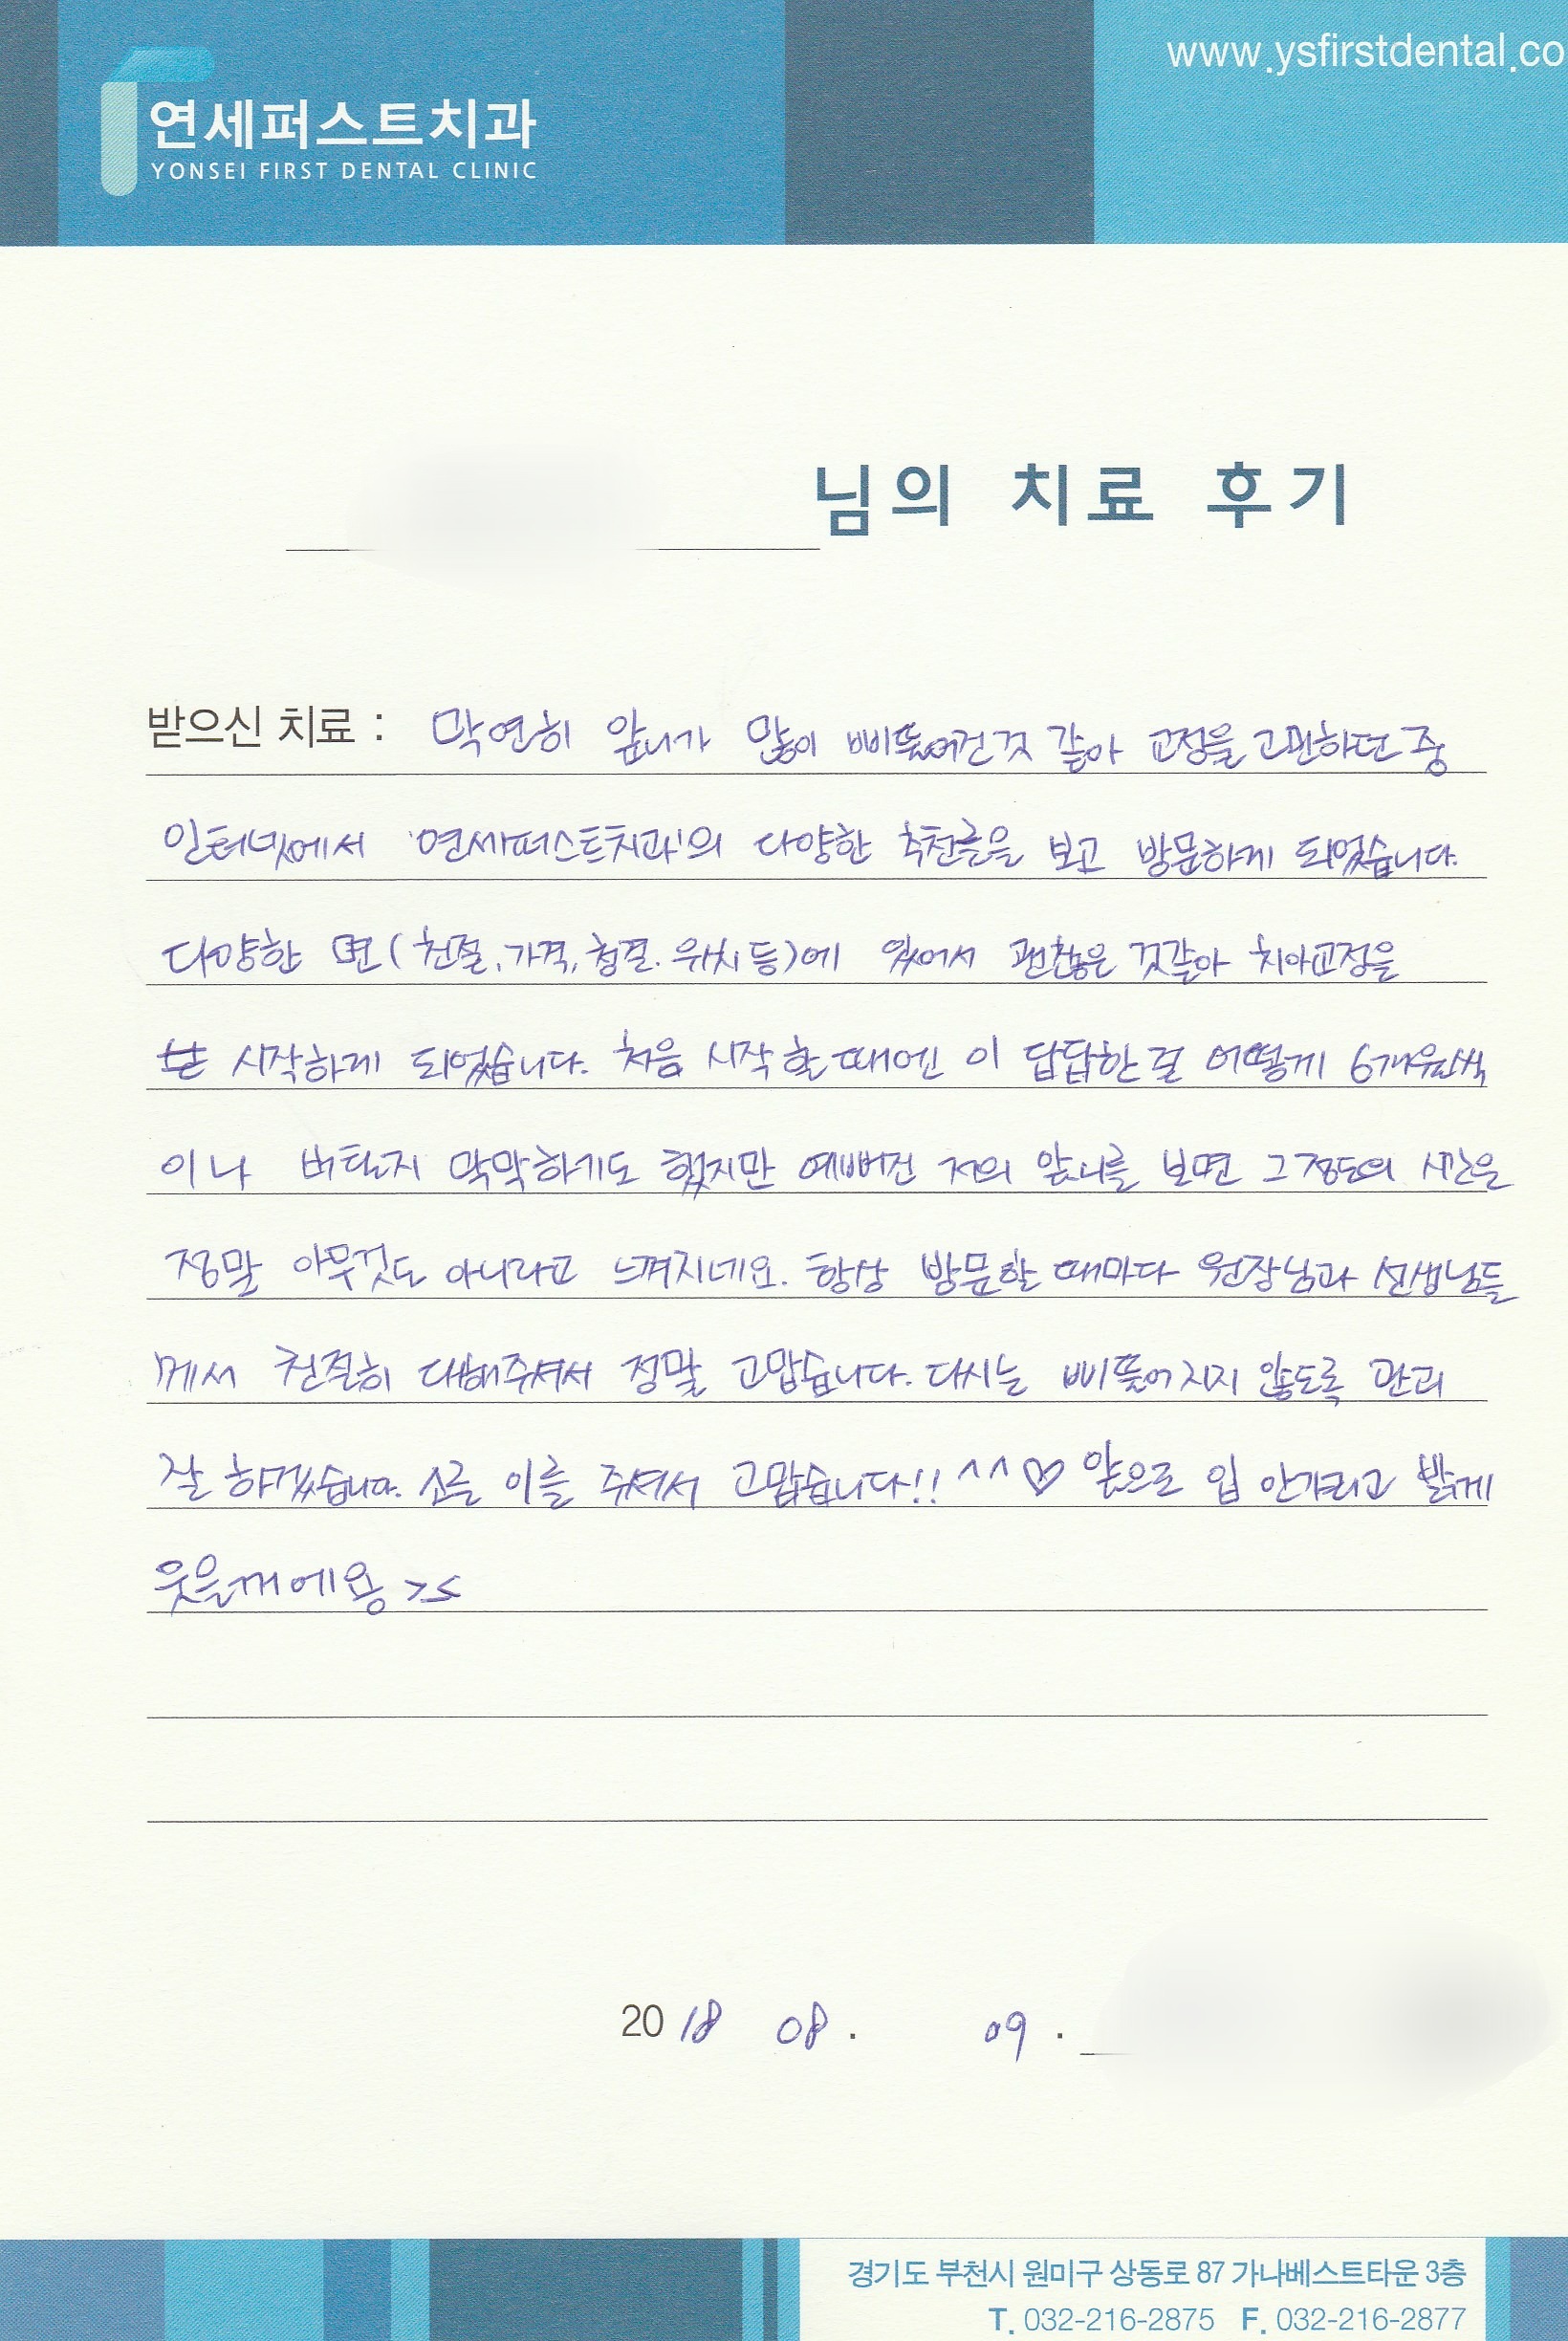 www.ysfirstdental.co
연세퍼스트치과
YONSEI FIRST DENTAL CLINIC
님의 치료 후기
받으신 치료 : 막연히 앞니가 많이 삐뚫어진것 같아 교정을 고민하던 중
인터넷에서 '연세퍼스트치과'의 다양한 추천글을 보고 방문하게 되었습니다.
다양한 면(친절, 가격, 청결. 위치 등)에 있어서 괜찮은 것같아 치아교정을
시작하게 되었습니다. 처음 시작 할 때엔 이 답답한 걸 어떻게 6개월씩
이나 버틸지 막막하기도 했지만 예뻐진 저의 앞니를 보면 그정도의 시간은
정말 아무것도 아니라고 느껴지네요. 항상 방문할 때마다 원장님과 선생님들
께서 친절히 대해주셔서 정말 고맙습니다. 다시는 삐뚫어지지 않도록 관리
잘 하겠습니다. 고른 이를 주셔서 고맙습니다!! ^^♡ 앞으로 입 안가리고 밝게
웃을께에용 >≤
2018 08. 09.
경기도 부천시 원미구 상동로 87 가나베스트타운 3층
T. 032-216-2875 F. 032-216-2877